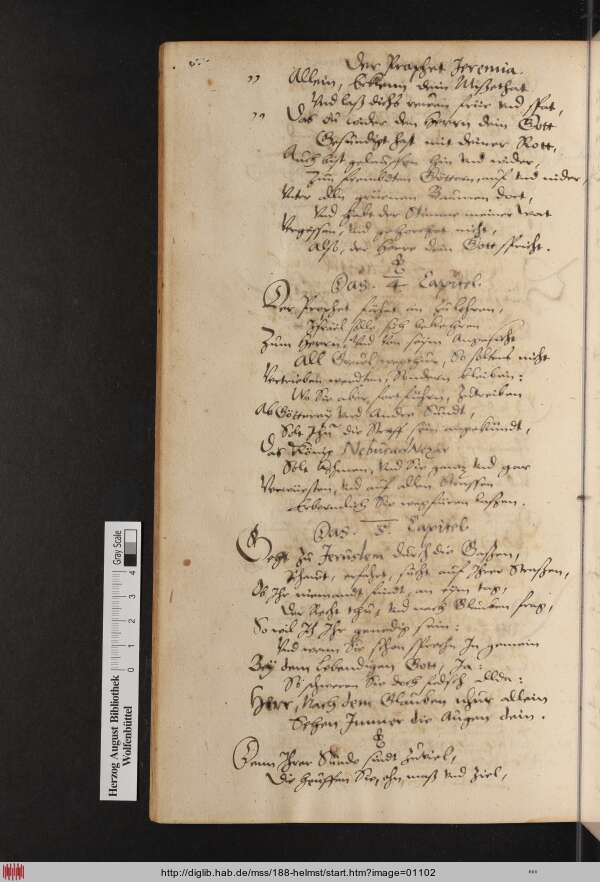 Der Prophet Jeremia.
" Allein, Erkenn dein Missethat
Und laß dichs rewen früe und spat,
" Das du wider den Herrn dein Gott
Gesündigt hast mit deiner Rott,
Auch bist gelauffen hin und wider,
Zun frembden Göttern, auf und nider,
Unter alln gruenen Baumen dort,
Und habt der Stimme meiner wort
Vergessen, und gehorchet nicht,
Also, der Herre dein Gott spricht.
Das. 4 Capitel.
Der Prophet fähet an zu lehren,
Israel solle sich bekehren
Zum Herrn, und von seim Angesicht
All Greuel wegthun, So soltens nicht
Vertrieben werdten, Sondern bleiben:
Wo Sie aber fortführn, Zutreiben
Abgötterey und Andre Sündt,
Solt Ihn die Straff sein angekündt,
Das König NebucadNezar
Solt kohmen, und Sie gantz und gar
Verwüesten, und auf allen Strassen
Erbermlich Sie wegfüren lassen.
Das. 5 Capitel.
Geht zu Jerusalem durch die Gassen,
Schaut, erfahrt, sucht auf Ihrer Strassen,
Ob Ihr niemandt findt, an eim tag,
Der Recht thu, und nach Glauben frag,
So wil Ich Ihr genedig sein:
Und wenn Sie schon sprechn In gemein
Bey dem lebendigen Gott, Ja:
So schweren Sie doch falsch allda:
Herr, Nach dem Glauben nhur allein
Sehen Immer die Augen dein.
Denn Ihrer Sünde sindt zuviel,
Die heuffen Sie, ohn maß und Ziel,
Herzog August Bibliothek
Wolfenbüttel
Gray Scale
0 1 2 3 4
http://diglib.hab.de/mss/188-helmst/start.htm?image=01102